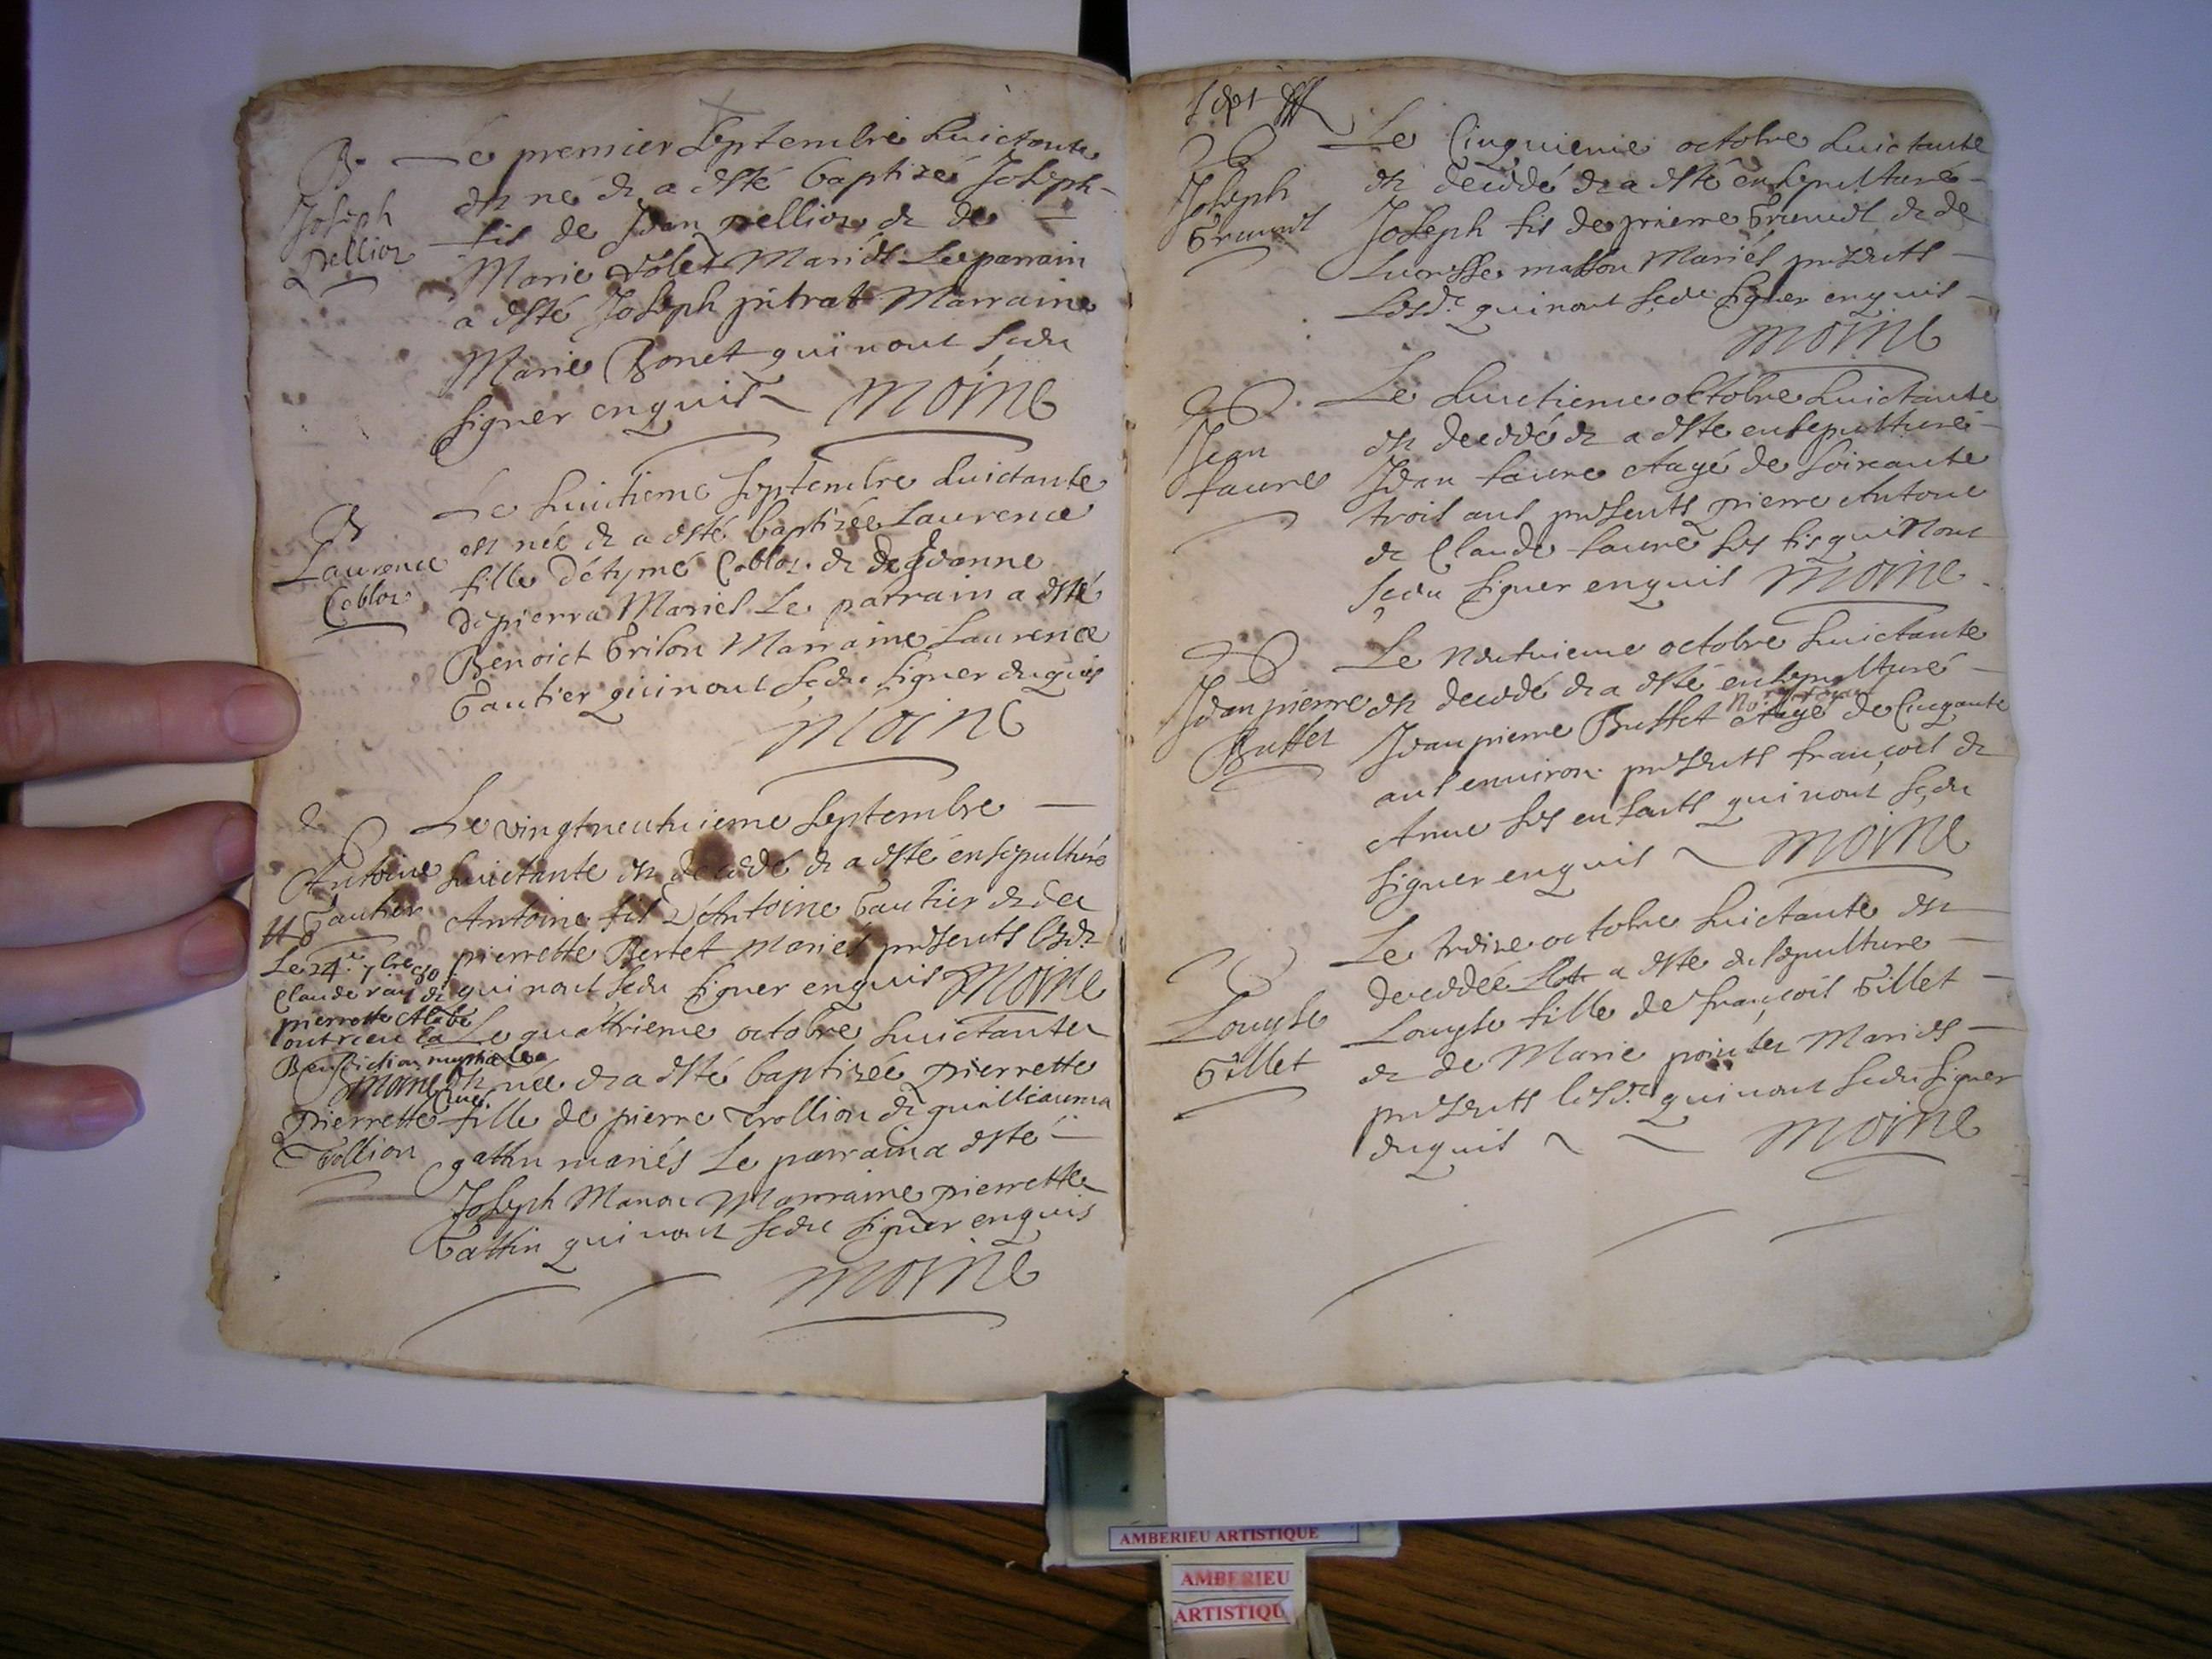 B.
Joseph
pellior
Le premier septembre huictante
est né et a esté baptizé Joseph
fils de Jean pellior et de
Marie Volet Mariés Le parrain
a esté Joseph pitrat Marraine
Marie Bonet qui n'ont sceu
signer enquis moine
B
Laurence
Coblor
Le huictieme septembre huictante
est née et a esté baptizée Laurence
fille d'étyme Coblor et de Jeanne
depierra Mariés Le parrain a esté
Benoict Grison Marraine Laurence
Gautier qui n'ont sceu signer enquis
moine
Antoine
Gautier
Le vingtneufvieme septembre
huictante est decedé et a esté ensepulturé
Antoine fils d'Antoine Gautier et de
pierrette Bertet mariés presents lesd
qui n'ont sceu signer enquis moine
Le 24e 7bre 80
Claude ray et
pierrette
ont receu la
Benediction nuptiale
moine Curé
pierrette
Vollion
Le quattrieme octobre huictante
est née et a esté baptizée pierrette
fille de pierre Vollion et guillauma
gattin mariés Le parrain a esté
Joseph Marraine pierrette
Gattin qui n'ont sceu signer enquis
moine
sept
Joseph
Le Cinquieme octobre huictante
est decedé et a esté ensepulturé
Joseph fils de pierre et de
Lucresse masson Mariés presents
Lesd. qui n'ont sceu signer enquis
moine
Jean
faure
Le huictieme octobre huictante
est decedé et a esté ensepulturé
Jean faure Aagé de soixante
trois ans presents pierre Antoine
et Claude faure ses fils qui n'ont
sceu signer enquis moine
Jean pierre
Buffet
Le neufvieme octobre huictante
est decedé et a esté ensepulturé
Jean pierre Buffet Aagé de Cinquante
ans environ presents françois et
Anne ses enfants qui n'ont sceu
signer enquis moine
Louyse
Gillet
Le treize octobre huictante est
decedée et a esté ensepulture
Louyse fille de françois Gillet
et de Marie Mariés
presents lesd. qui n'ont sceu signer
enquis moine
AMBERIEU ARTISTIQUE
AMBERIEU
ARTISTIQU